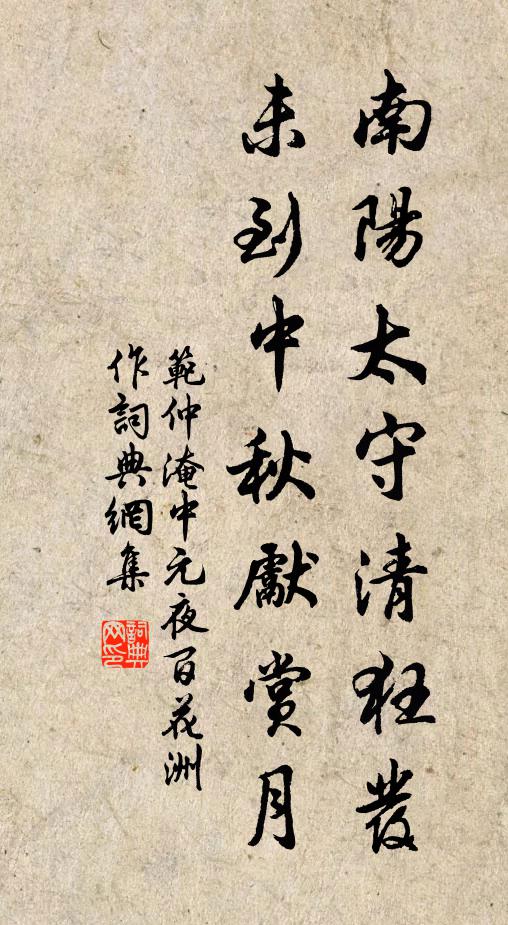 南陽太守清狂發
未到中秋獻賞月
範仲淹中元夜百花洲
作詞典網集
詞典
網印